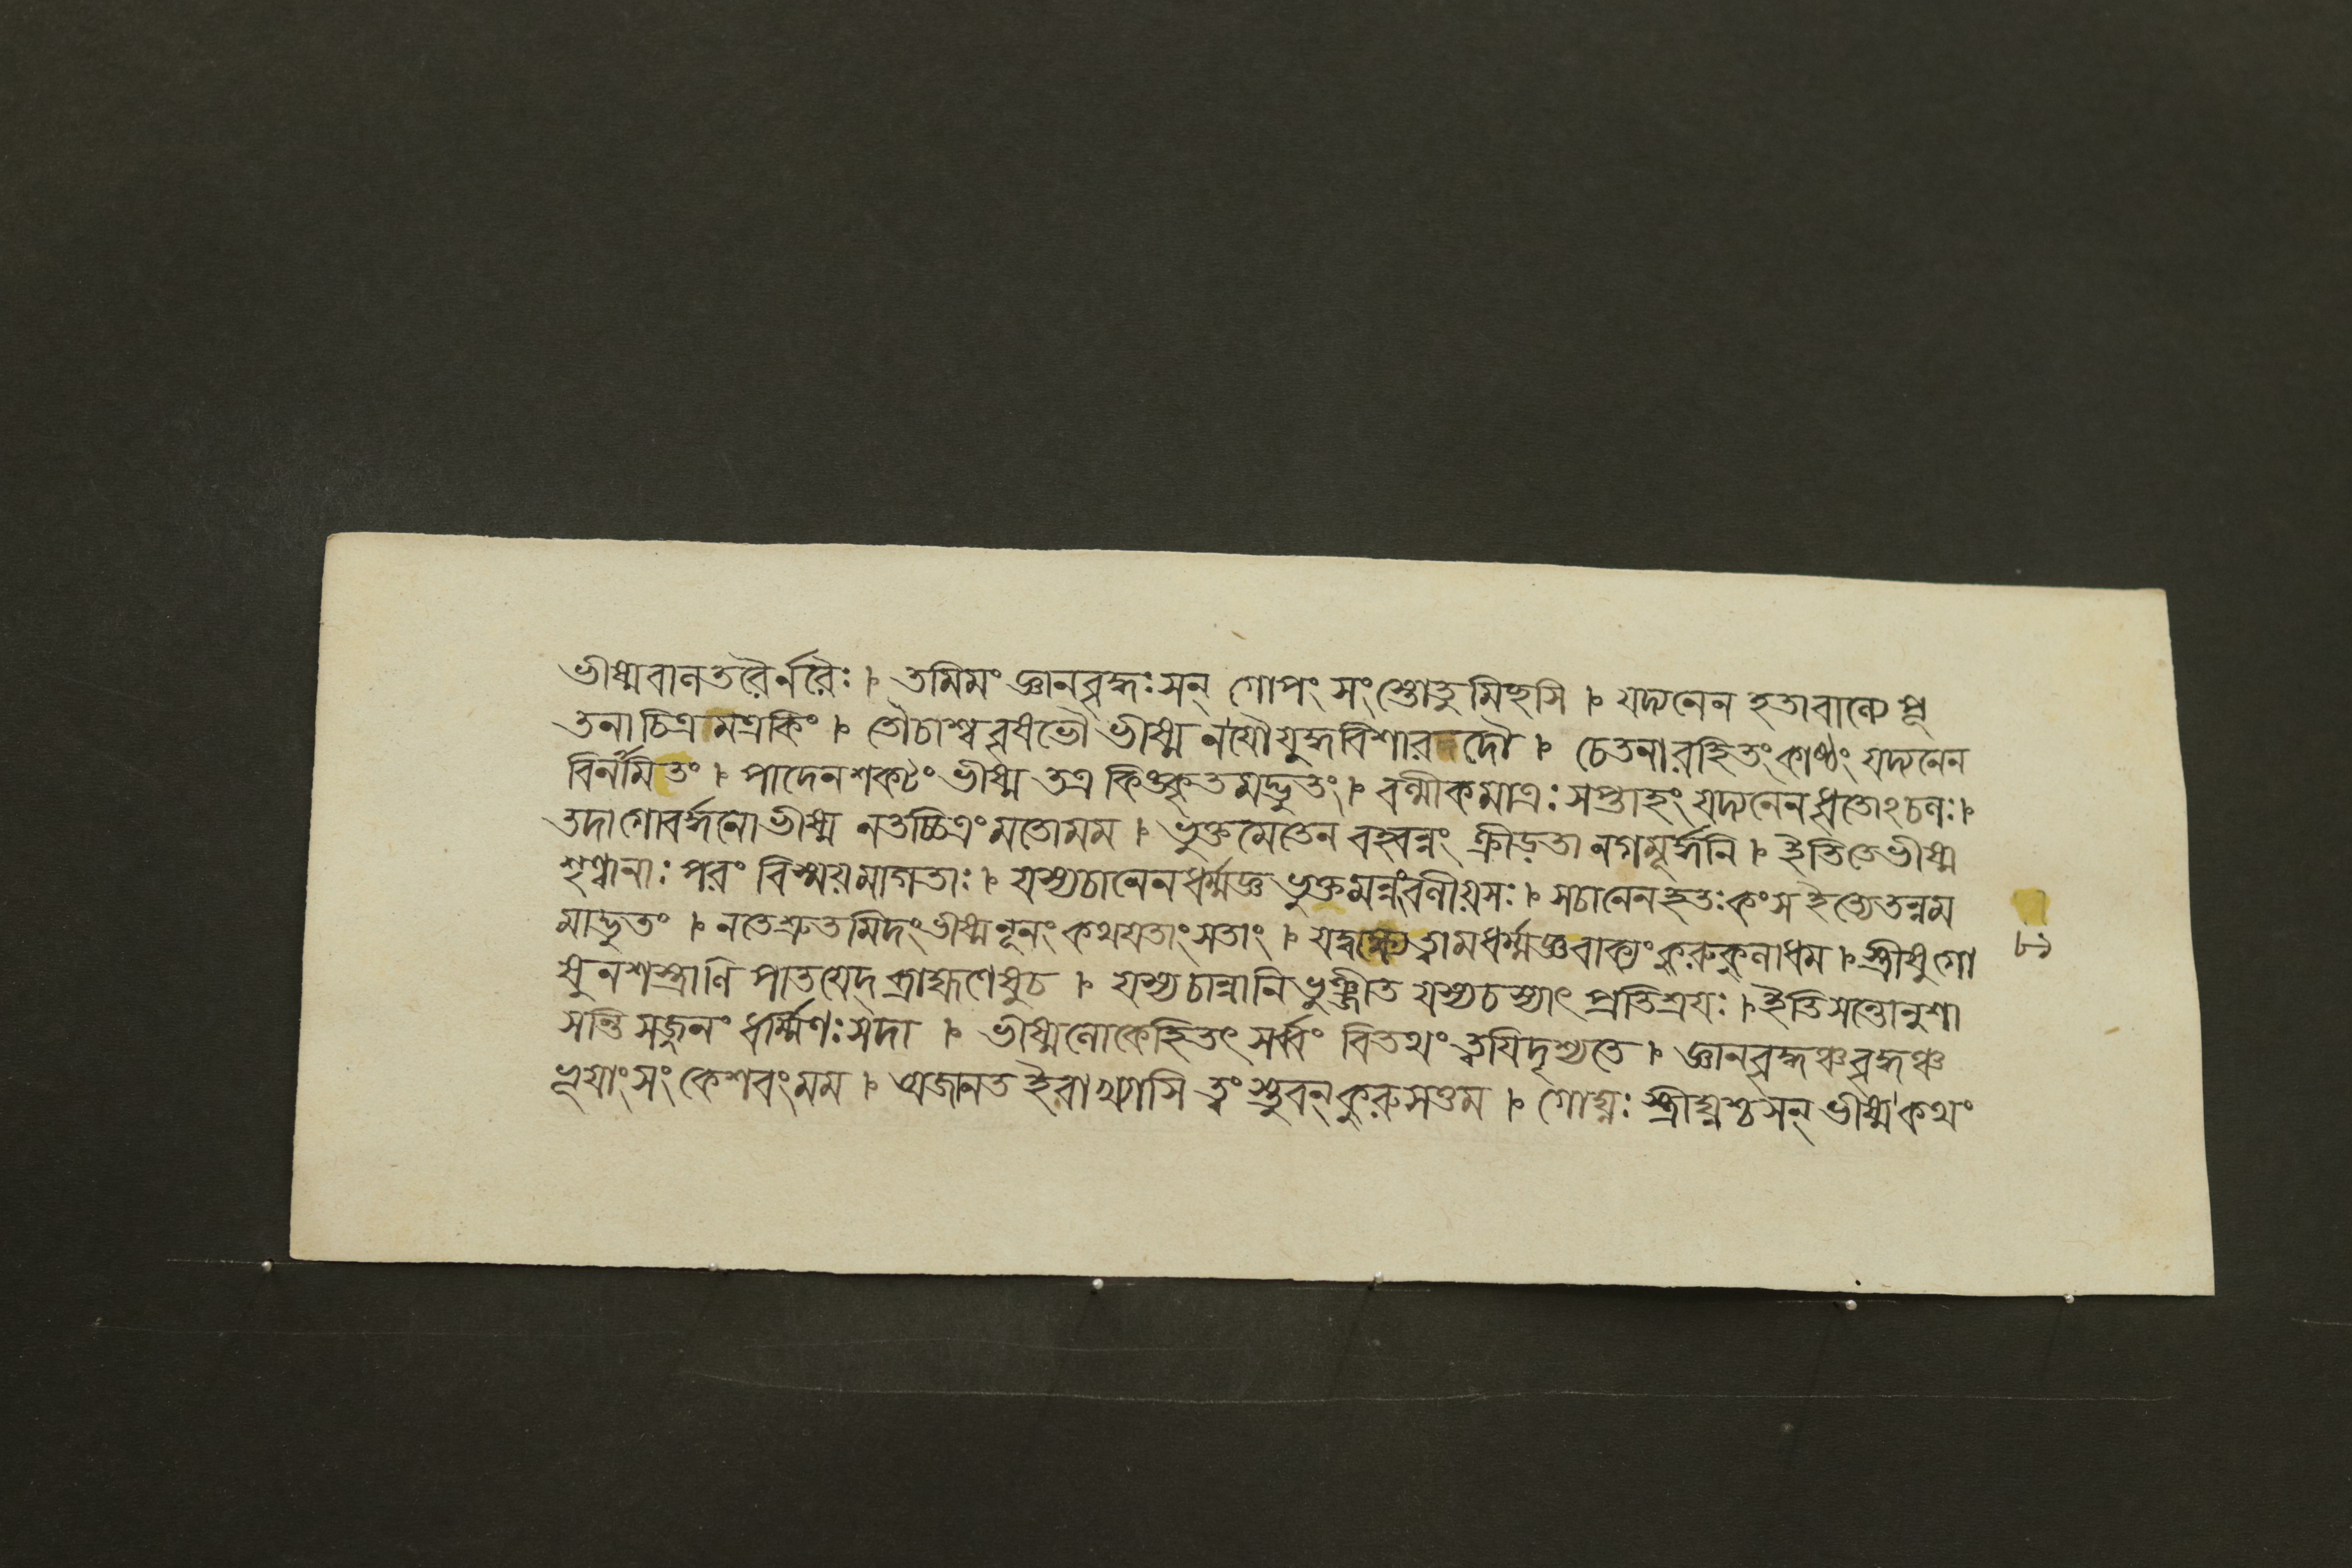 ভীষ্মবালতরৈর্নরৈঃ । তমিমং জ্ঞানবৃদ্ধঃসন্ গোপং সংস্তোতুমিহসি । যদ্যনেন হতাবাল্যে পূ
তনাচিত্রমত্রকিং । তৌচাশ্ববৃষভৌ ভীষ্ম নযৌযুদ্ধবিশারদৌ । চেতনারহিতংকাষ্ঠং যদ্যনেন
বির্নামিতং । পাদেনশকটং ভীষ্ম তত্র কিংকৃতমদ্ভুতং । বল্মীকমাত্রঃসপ্তাহং যদ্যনেনধৃতোঽচলঃ।
তদাগোবর্দ্ধনোভীষ্ম নতচ্চিত্রংমতোমম । ভুক্তমেতেন বহ্বন্নং ক্রীড়তা নগমূর্দ্ধনি । ইতিতেভীষ্ম
শৃণ্বানাঃপরং বিস্ময়মাগতাঃ । যস্যচানেনধর্ম্মজ্ঞ ভুক্তমন্নংবলীয়সঃ । সচানেনহতঃকংস ইত্যেতন্নম
মাদ্ভুতং । নতেশ্রুতমিদংভীষ্মনূনং কথযতাংসতাং । যদ্বক্ষ্যেত্বামধর্ম্মজ্ঞবাক্যংকুরুকুলাধম । স্ত্রীষুগো
ষুনশস্ত্রাণি পাতযেদ্ব্রাহ্মণেষুচ । যস্যচান্নানিভুঞ্জীত যস্যচস্যাৎ প্রতিশ্রযঃ । ইতিসন্তোনুশা
সন্তি সজ্জনং ধর্ম্মিণঃসদা । ভীষ্মলোকেহিতৎ সর্ব্বং বিতথংত্বযিদৃশ্যতে । জ্ঞানবৃদ্ধঞ্চবৃদ্ধঞ্চ
ভূযাংসং কেশবংমম । অজানত ইবাখ্যাসি ত্বংস্তুবন্কুরুসত্তম । গোঘ্নঃ স্ত্রীঘ্নশ্চসন্ ভীষ্মকথং
৮১